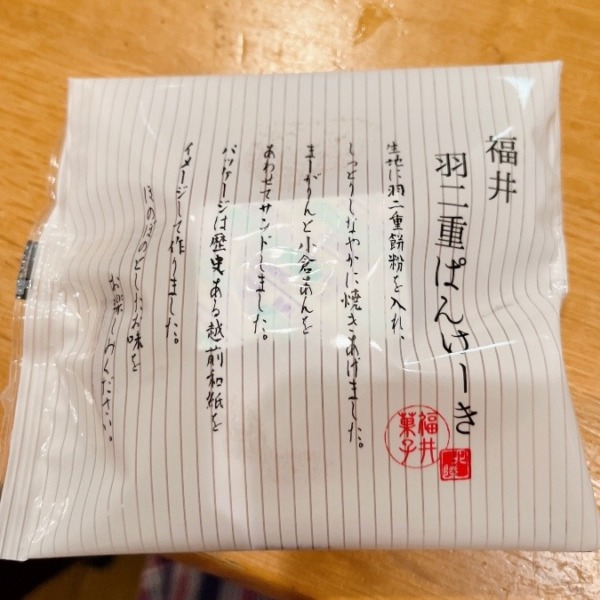 福井
羽二重ぱんけーき
生地に羽二重餅粉を入れ、
しっとりしなやかに焼きあげました。
まーがりんと小倉あんを
あわせてサンドしました。
パッケージは歴史ある越前和紙を
イメージして作りました。
ほのぼのとしたお味を
お楽しみください。
福井
菓子